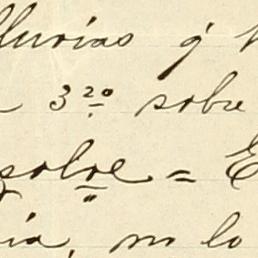 lluvias q
3ro sobre
solre = E
ia, no lo